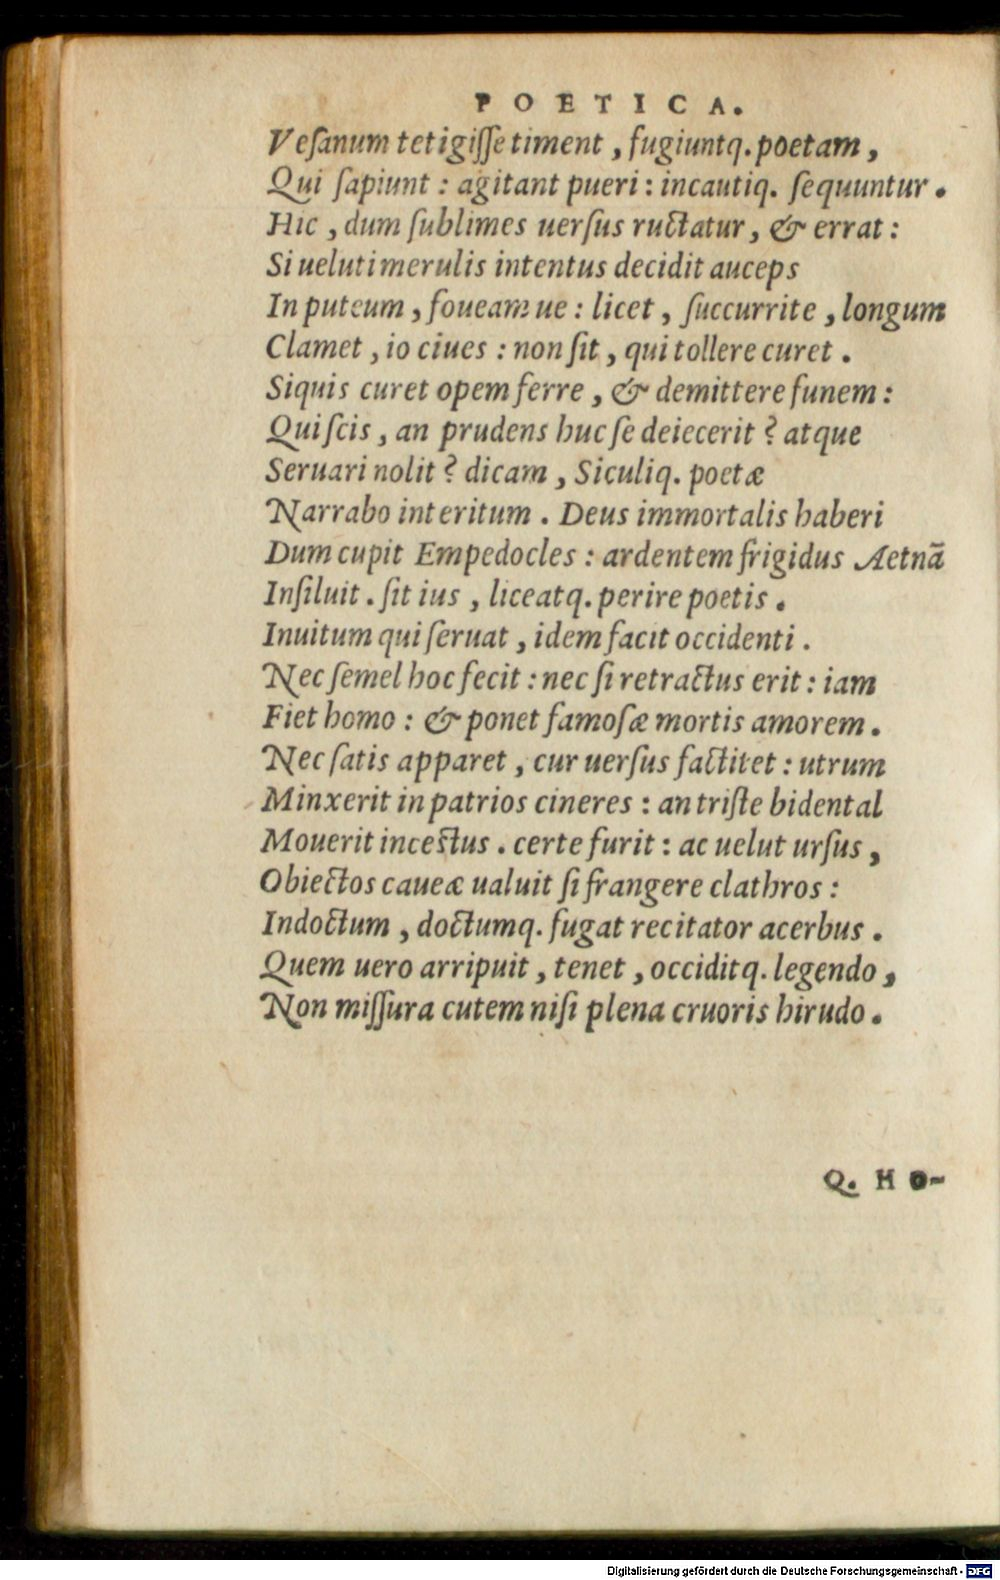 POETICA.
Veſanum tetigiſſe timent, fugiuntq. poetam,
Qui ſapiunt: agitant pueri: incautiq. ſequuntur.
Hic, dum ſublimes uerſus ructatur, & errat:
Si ueluti merulis intentus decidit auceps
In puteum, foueam ue: licet, ſuccurrite, longum
Clamet, io ciues: non ſit, qui tollere curet.
Siquis curet opem ferre, & demittere funem:
Qui ſcis, an prudens huc ſe deiecerit? atque
Seruari nolit? dicam, Siculiq. poetæ
Narrabo interitum. Deus immortalis haberi
Dum cupit Empedocles: ardentem frigidus Aetnā
Inſiluit. ſit ius, liceatq. perire poetis.
Inuitum qui ſeruat, idem facit occidenti.
Nec ſemel hoc fecit: nec ſi retractus erit: iam
Fiet homo: & ponet famoſæ mortis amorem.
Nec ſatis apparet, cur uerſus factitet: utrum
Minxerit in patrios cineres: an triſte bidental
Mouerit inceſtus. certe furit: ac uelut urſus,
Obiectos caueæ ualuit ſi frangere clathros:
Indoctum, doctumq. fugat recitator acerbus.
Quem uero arripuit, tenet, occiditq. legendo,
Non miſſura cutem niſi plena cruoris hirudo.
Q. HO-
Digitalisierung gefördert durch die Deutsche Forschungsgemeinschaft - DFG